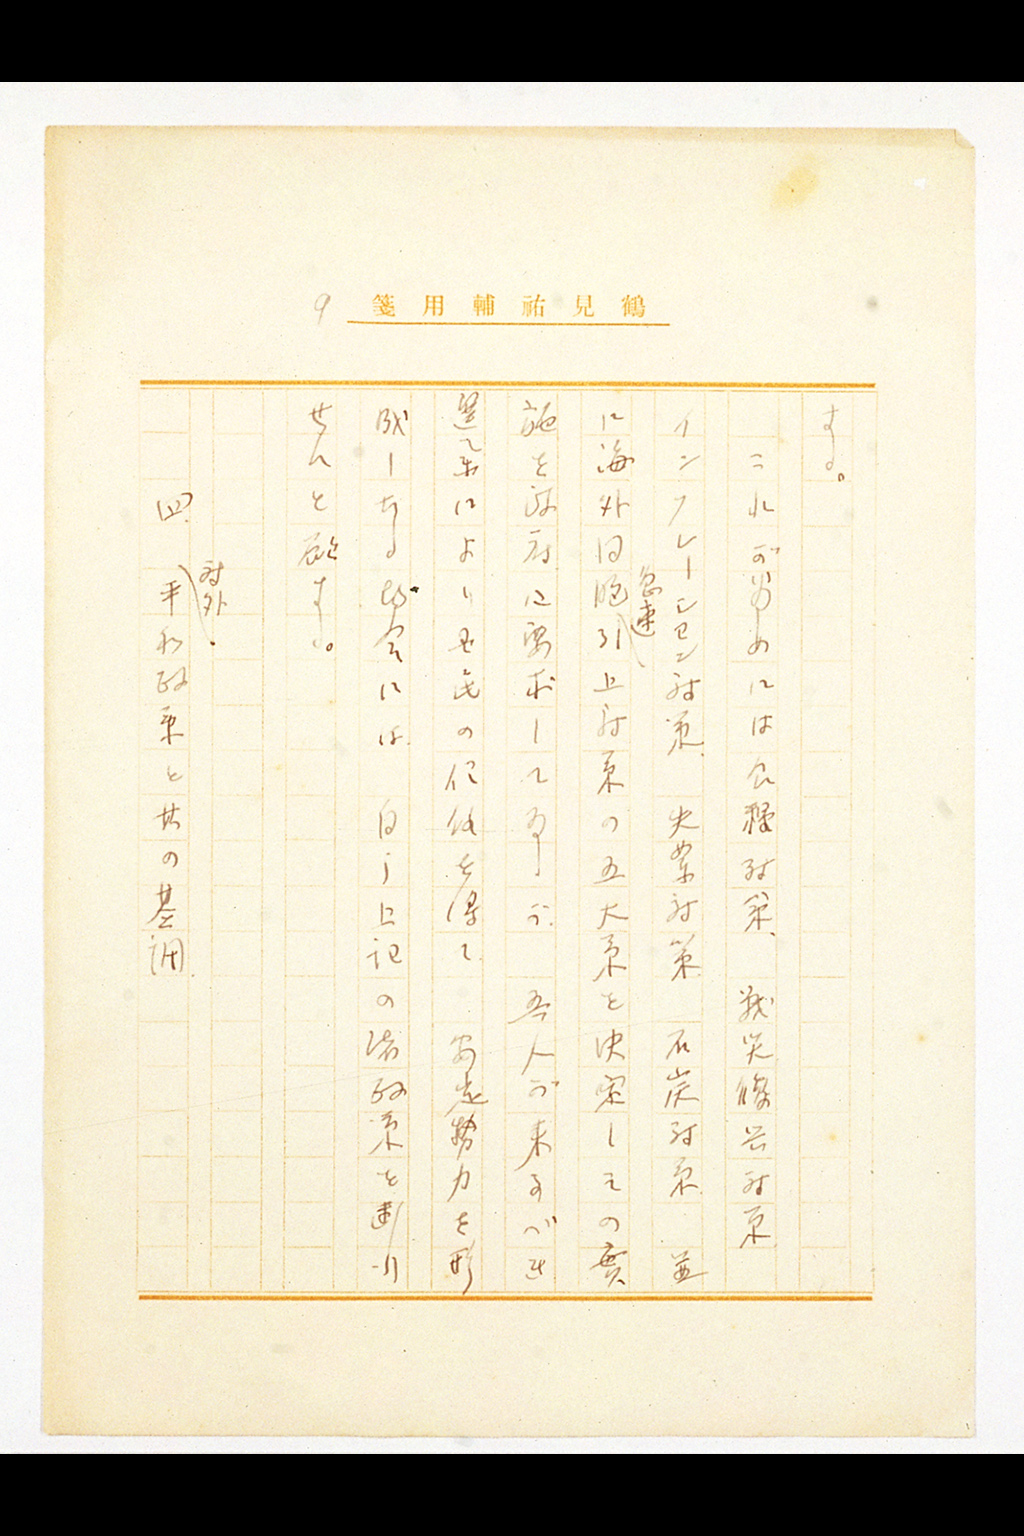 鶴見祐輔用箋
9
する。
これが為めには食糧対策、戦災復興対策
インフレーション対策、失業対策、石炭対策、並
に海外同胞急速引上対策の五大策を決定しその実
施を政府に要求して居るが、吾人が来るべき
選挙により国民の信任を得て、安定勢力を形
成しなる際会には、自ら上記の諸政策を断行
せんと欲する。
四、対外平和政策と其の基調